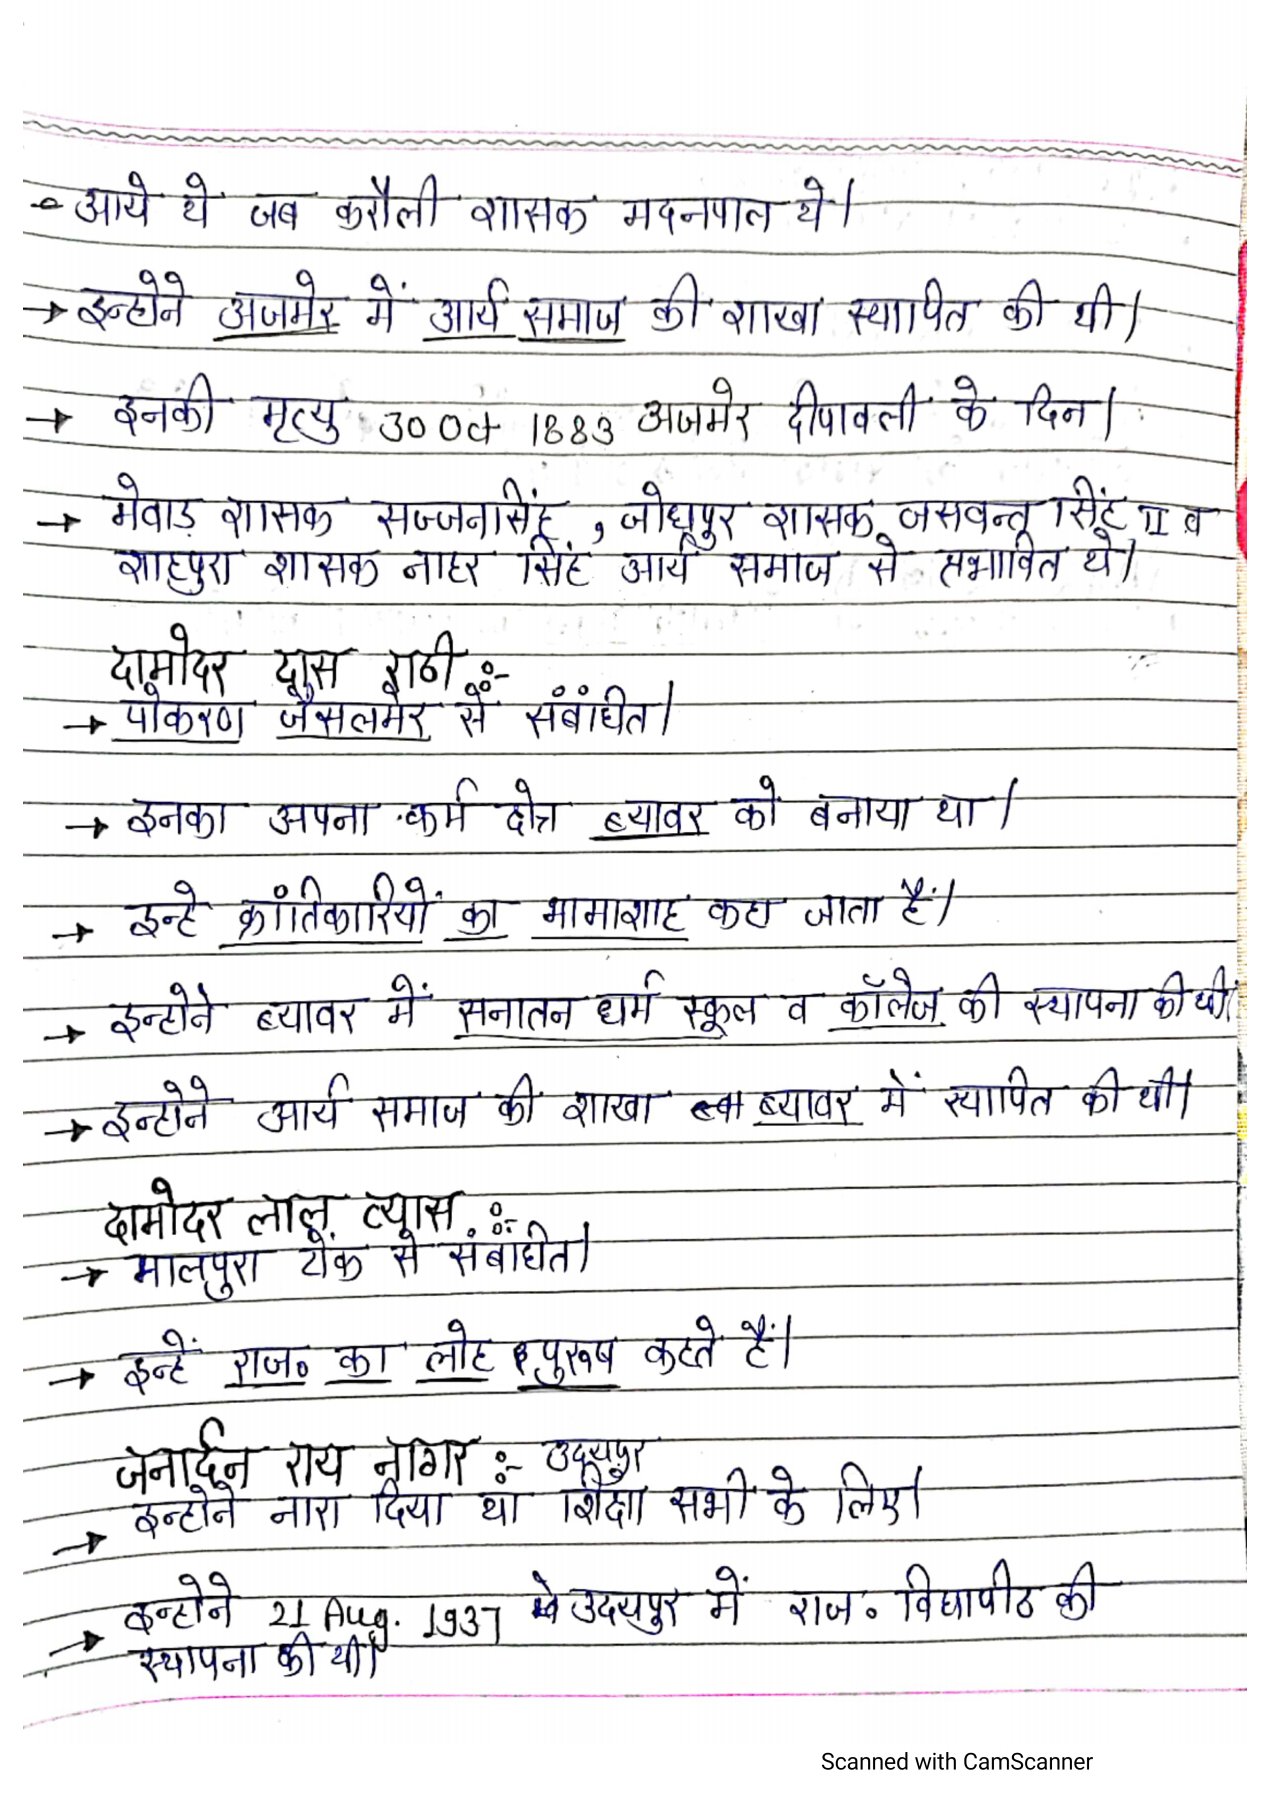 आये थे जब करौली शासक मदनपाल थे।
→ इन्होने अजमेर में आर्य समाज की शाखा स्थापित की थी।
→ इनकी मृत्यु 30 Oct 1883 अजमेर दीपावली के दिन।
→ मेवाड़ शासक सज्जनसिंह, जोधपुर शासक जसवन्त सिंह II व
शाहपुरा शासक नाहर सिंह आर्य समाज से प्रभावित थे।
दामोदर दास राठी :-
→ पोकरण जैसलमेर से संबंधित।
→ इनका अपना कर्म क्षेत्र ब्यावर को बनाया था।
→ इन्हे क्रांतिकारियों का भामाशाह कहा जाता है।
→ इन्होने ब्यावर में सनातन धर्म स्कूल व कॉलेज की स्थापना की थी।
→ इन्होने आर्य समाज की शाखा ब्यावर में स्थापित की थी।
दामोदर लाल व्यास :-
→ मालपुरा टोंक से संबंधित।
→ इन्हें राज० का लोह पुरूष कहते हैं।
जनार्दन राय नागर :- उदयपुर
→ इन्होने नारा दिया था शिक्षा सभी के लिए।
→ इन्होने 21 Aug. 1937 उदयपुर में राज० विद्यापीठ की
स्थापना की थी।
Scanned with CamScanner